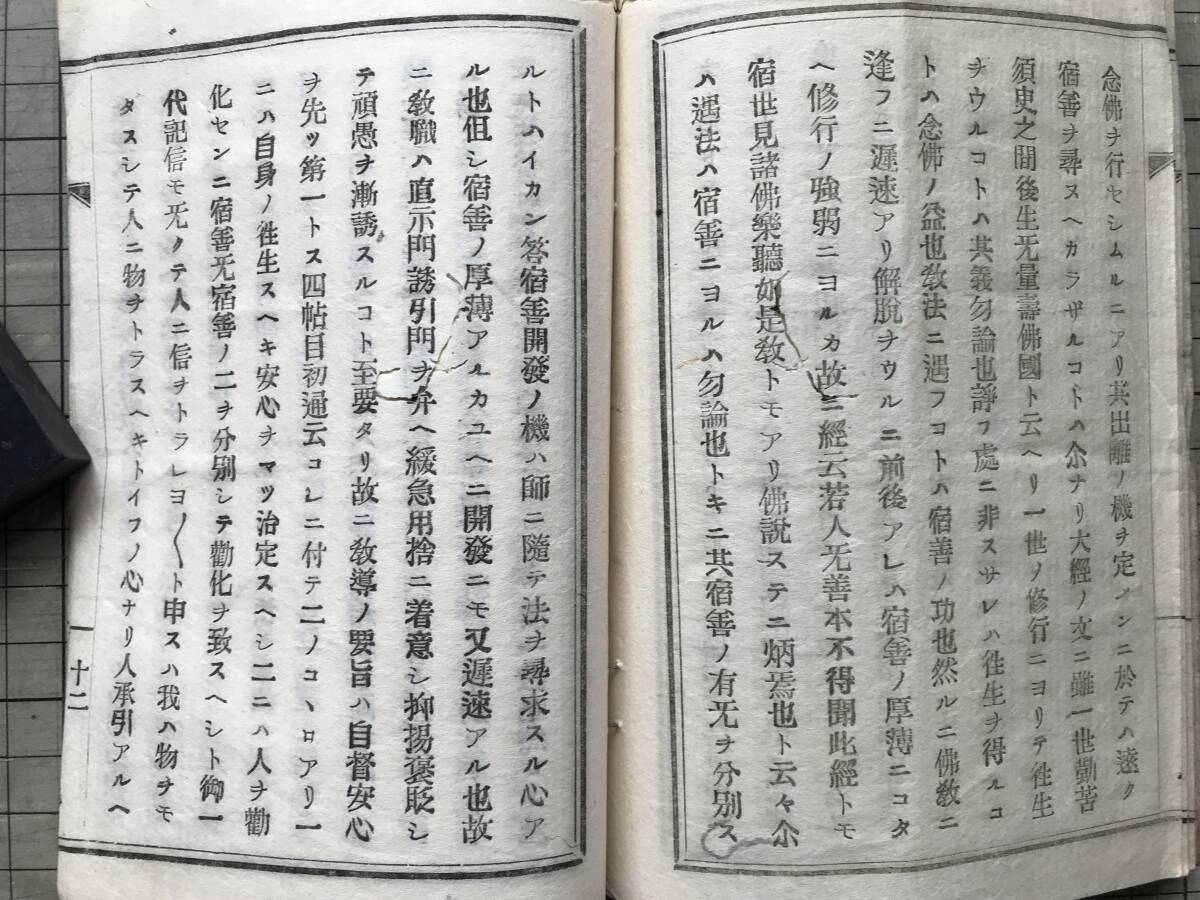 念佛ヲ行セシムルニアリ其出離ノ機ヲ定メンニ於テハ遠ク
宿善ヲ尋ヌヘカラザルコトハ尒ナリ大經ノ文ニ雖一世勤苦
須史之間後生无量壽佛國ト云ヘリ一世ノ修行ニヨリテ徃生
ヲウルコトハ其義勿論也諍フ處ニ非スサレハ徃生ヲ得ルコ
トハ念佛ノ益也敎法ニ遇フコトハ宿善ノ功也然ルニ佛敎ニ
逢フニ遲速アリ解脫ヲウルニ前後アレハ宿善ノ厚薄ニコタ
ヘ修行ノ強弱ニヨルカ故ニ經云若人无善本不得聞此經トモ
宿世見諸佛樂聽如是敎トモアリ佛說ステニ炳焉也ト云々尒
ハ遇法ハ宿善ニヨルハ勿論也トキニ其宿善ノ有无ヲ分別ス
ルトハイカン答宿善開發ノ機ハ師ニ隨テ法ヲ尋求スル心ア
ル也但シ宿善ノ厚薄アルカユヘニ開發ニモ又遲速アル也故
ニ敎職ハ直示門誘引門ヲ弁ヘ緩急用捨ニ着意シ抑揚褒貶シ
テ頑愚ヲ漸誘スルコト至要タリ故ニ敎導ノ要旨ハ自督安心
ヲ先ツ第一トス四帖目初通云コレニ付テ二ノコヽロアリ一
ニハ自身ノ徃生スヘキ安心ヲマツ治定スヘシ二ニハ人ヲ勸
化センニ宿善无宿善ノ二ヲ分別シテ勸化ヲ致スヘシト御一
代記信モ无クテ人ニ信ヲトラレヨ〱ト申スハ我ハ物ヲモ
タスシテ人ニ物ヲトラスヘキトイフノ心ナリ人承引アルヘ
一十二